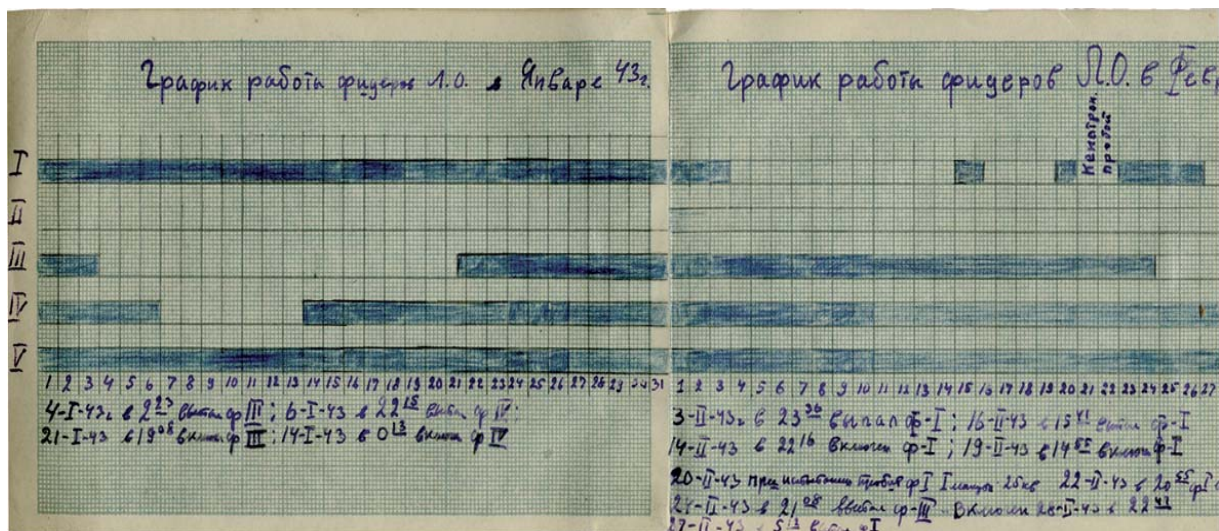 График работы фидеров Л.О. в Январе 43г.
I
II
III
IV
V
1 2 3 4 5 6 7 8 9 10 11 12 13 14 15 16 17 18 19 20 21 22 23 24 25 26 27 28 29 30 31
4-I-43г. в 2 23 выпал ф III; 6-I-43 в 22 15 выпал ф IV;
21-I-43 в 19 08 включ ф III; 14-I-43 в 0 13 включ ф IV
График работы фидеров Л.О. в Февр
Кенотрон.
пробой
1 2 3 4 5 6 7 8 9 10 11 12 13 14 15 16 17 18 19 20 21 22 23 24 25 26 27
3-II-43г. в 23 36 выпал ф-I; 16-II-43 в 15 41 выпал ф-I
14-II-43 в 22 16 включен ф-I; 19-II-43 в 14 55 включ ф-I
20-II-43 при испытании пробой ф I 25кв 22-II-43 в 20 55 ф I
24-II-43 в 21 08 выпал ф-III. Включен II-43 в 22
27-II-43 в 5 13 ф I